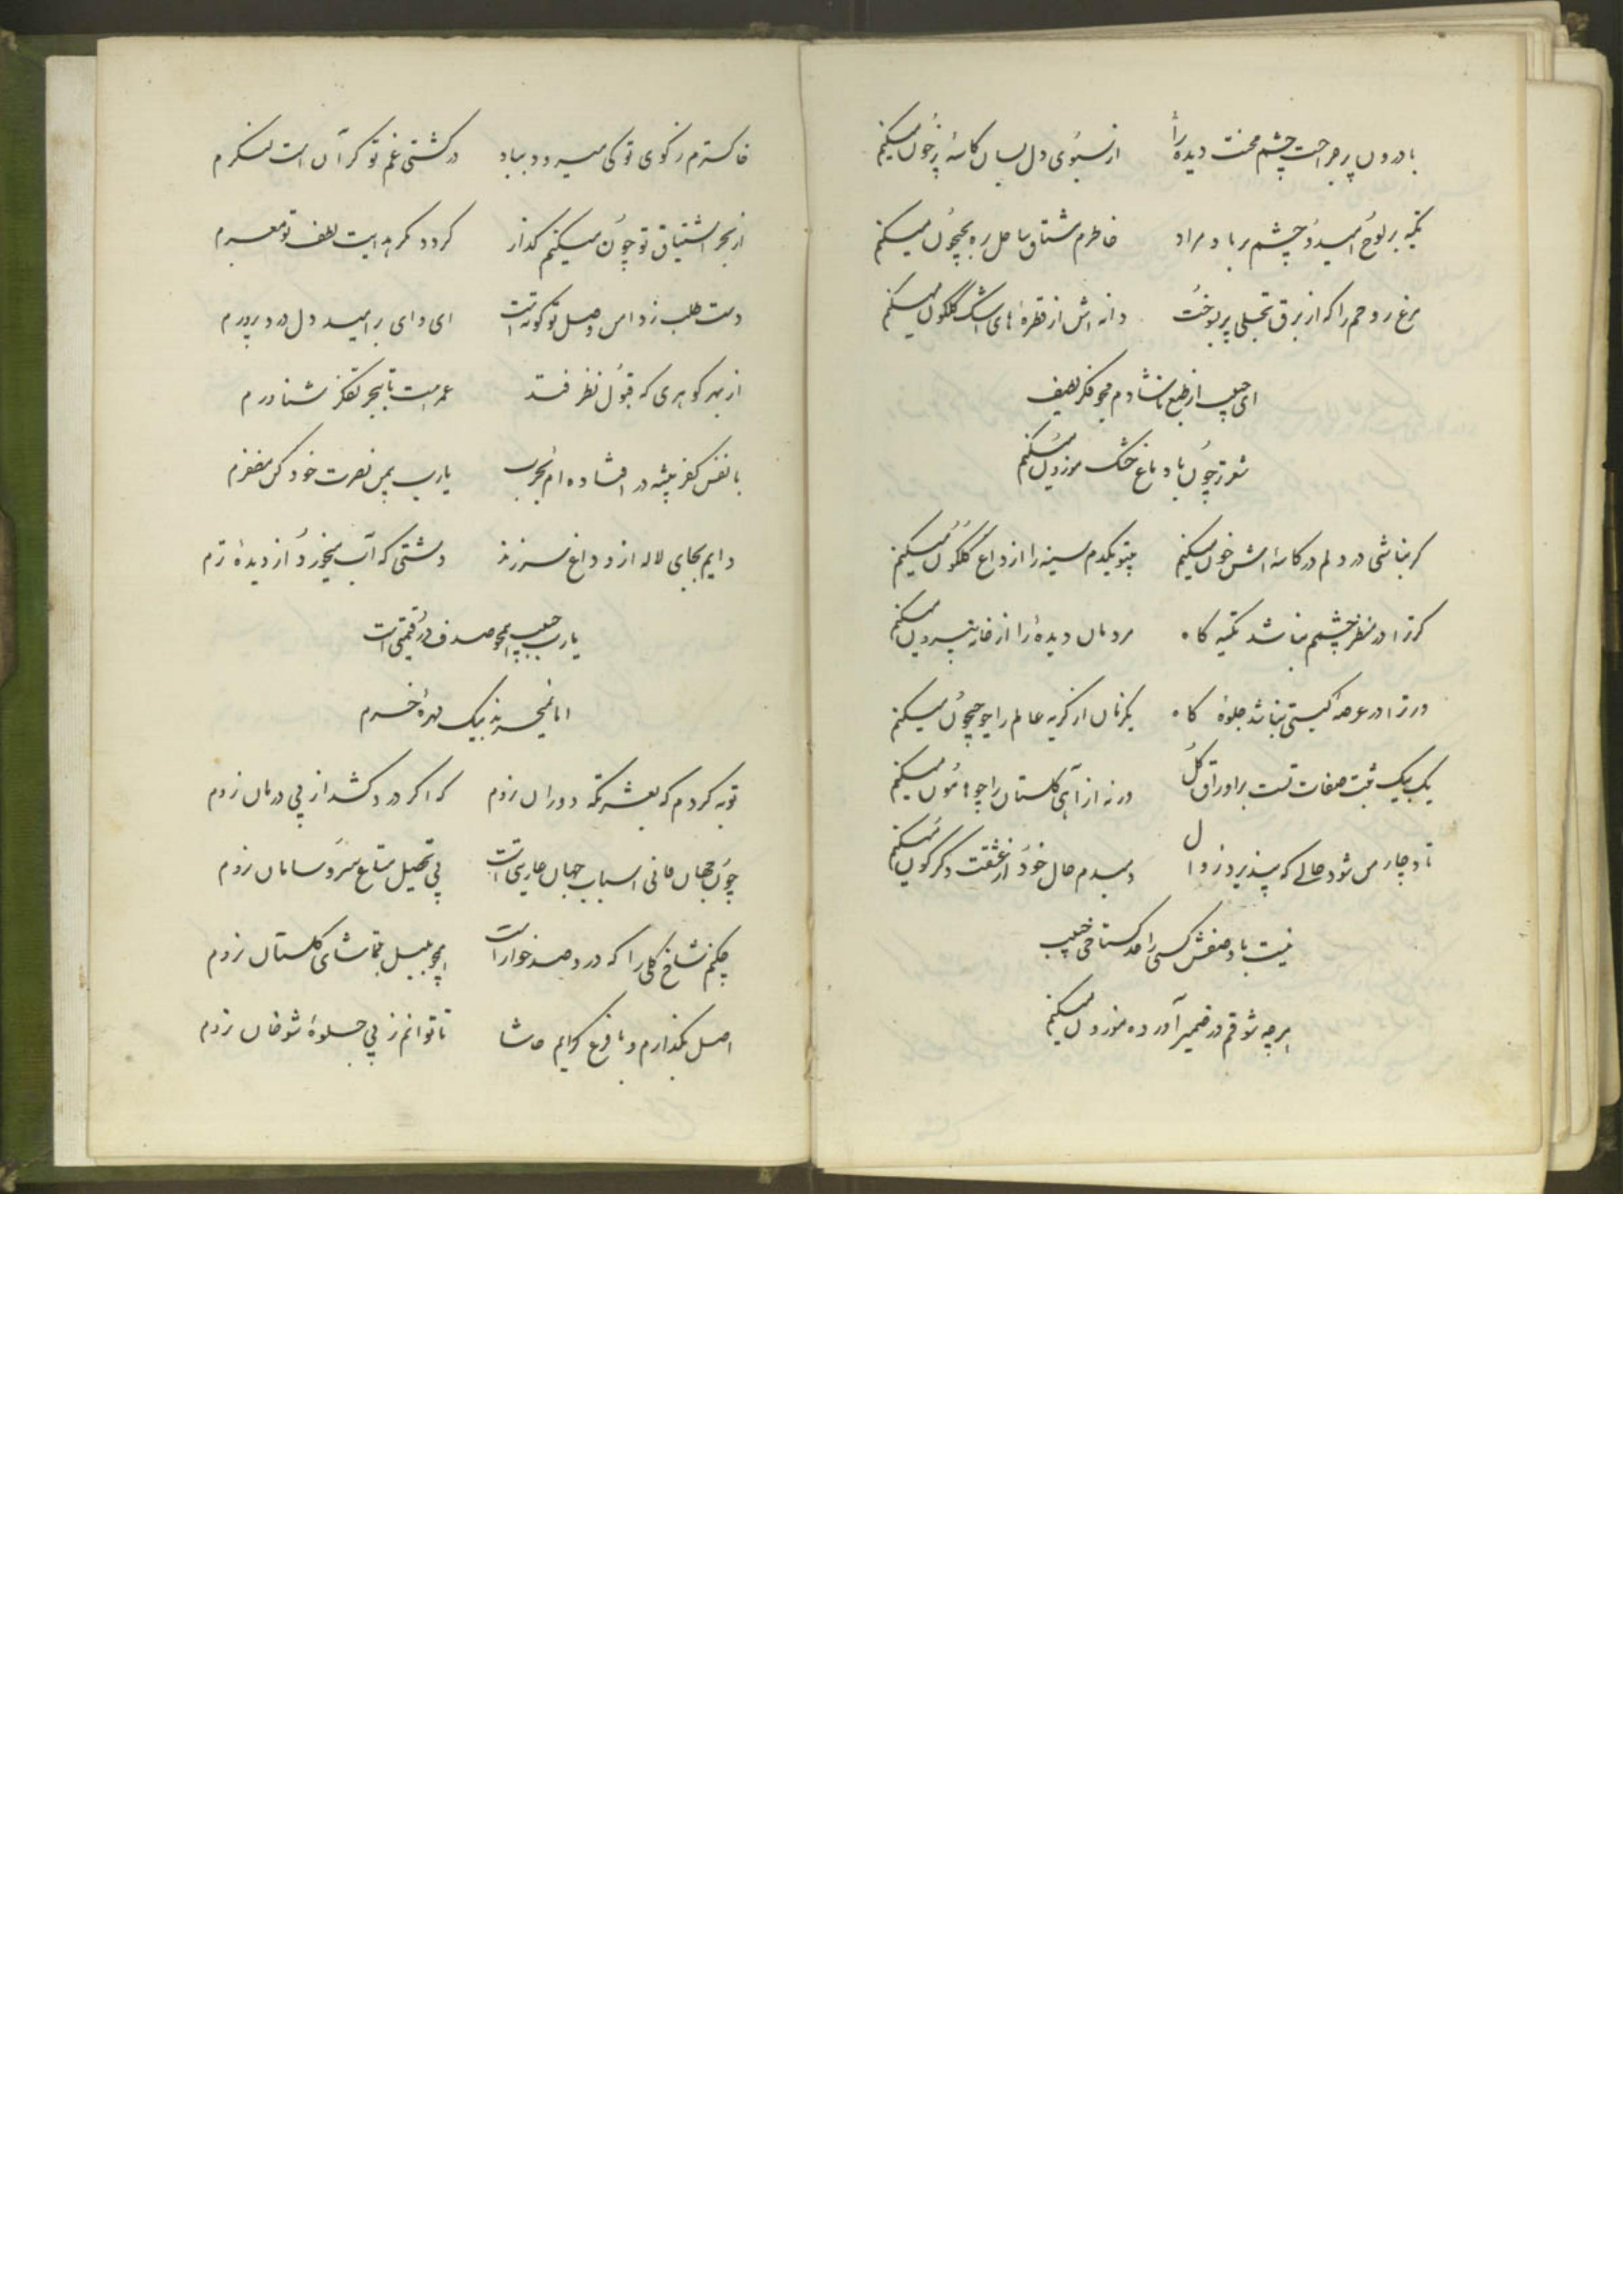 با درون پر جراحت چشم محنت دیده را از سبوی دل بسان کاسه پر خون میکنم
تکیه بر لوح امید و چشم بر باد مراد خاطرم مشتاق ساحل ره بجیحون میکنم
مرغ روحم را که از برق تجلی پر بسوخت دانه اش از قطره های اشک گلگون میکنم
ای حبیب از طبع ناشادم مجو فکر لطیف
شعر تر چون با دماغ خشک موزون میکنم
کر نباشی در دلم در کاسه اش خون میکنم بیتو یکدم سینه را از داغ گلگون میکنم
کر ترا در منظر چشمم نباشد تکیه کاه مردمان دیده را از خانه بیرون میکنم
ور ترا در عرصه کیتی نباشد جلوه کاه یکزمان از کریه عالم را چو جیحون میکنم
یک بیک ثبت صفات تست بر اوراق کل ورنه از آهی کلستان را چو هامون میکنم
تا دچار من شود حالے که نپذیرد زوال دمبدم حال خود از عشقت دکرکون میکنم
نیست با وصفش کسی را حد کستاخی حبیب
هرچه شوقم در ضمیر آورده موزون میکنم
خاکسترم ز کوی تو کی میرود بباد در کشتی غم تو کران است لنکرم
از بحر اشتیاق تو چون میکنم کذار کردد مکر هدایت لطف تو معبرم
دست طلب ز دامن وصل تو کوته است ای وای بر امید دل درد پرورم
از بهر کوهری که قبول نظر فتد عمریست تا ببحر تفکر شناورم
با نفس کفر پیشه در افتاده ام بحرب یارب بمن نصرت خود کن مظفرم
دایم بجای لاله ازو داغ سر زند دشتی که آب میخورد از دیدهٔ ترم
یارب حبیب همچو صدف در قیمتی است
اما نمیخرند بیک مهرهٔ خرم
توبه کردم که بعشرتکه دوران نروم که اکر درد کشد از پی درمان نروم
چون جهان فانی و اسباب جهان عاریتی است پی تحصیل متاع سر و سامان نروم
چکنم شاخ کلی را که درو صد خوار است همچو بلبل بتماشای کلستان نروم
اصل بکذارم و با فرع کرایم حاشا تا توانم ز پی جلوهٔ شوخان نروم